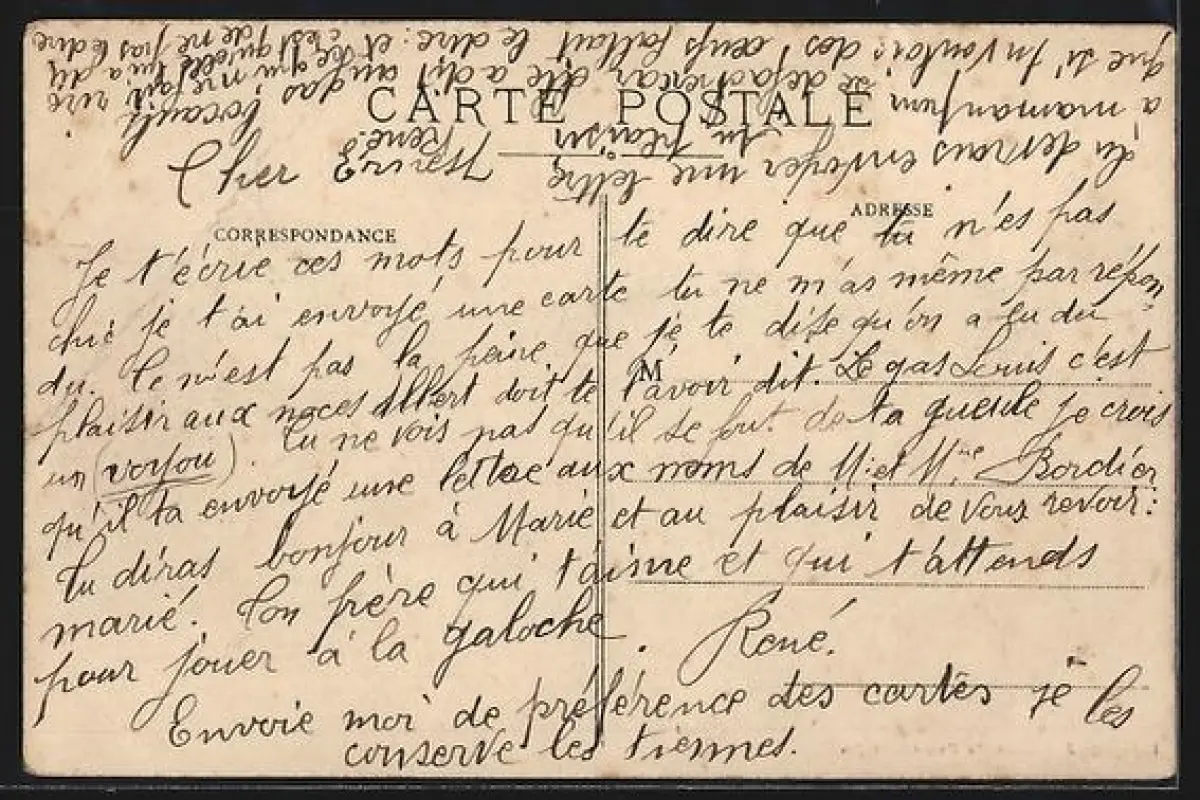 CARTE POSTALE
CORRESPONDANCE
ADRESSE
M
Cher
Je t'écrie ces mots pour te dire que tu n'es pas
chic je t'ai envoyé une carte tu ne m'as même par répon
du. Ce n'est pas la peine que je te dise qu'on a eu du
plaisir aux noces Albert doit te l'avoir dit. Le gas Louis c'est
un (voyou). Tu ne vois pas qu'il se fout de ta gueule je crois
qu'il ta envoyé une lettre aux noms de M. et Mme Bordier
Tu diras bonjour à Marie et au plaisir de vous revoir.
marié. Ton frère qui t'aime et qui t'attends
pour jouer à la galoche. René.
Envoie moi de préférence des cartes je les
conserve les tiennes.
René.
tu devrais envoyer une lettre
a maman
que si tu voulais des œufs fallait le dire: et